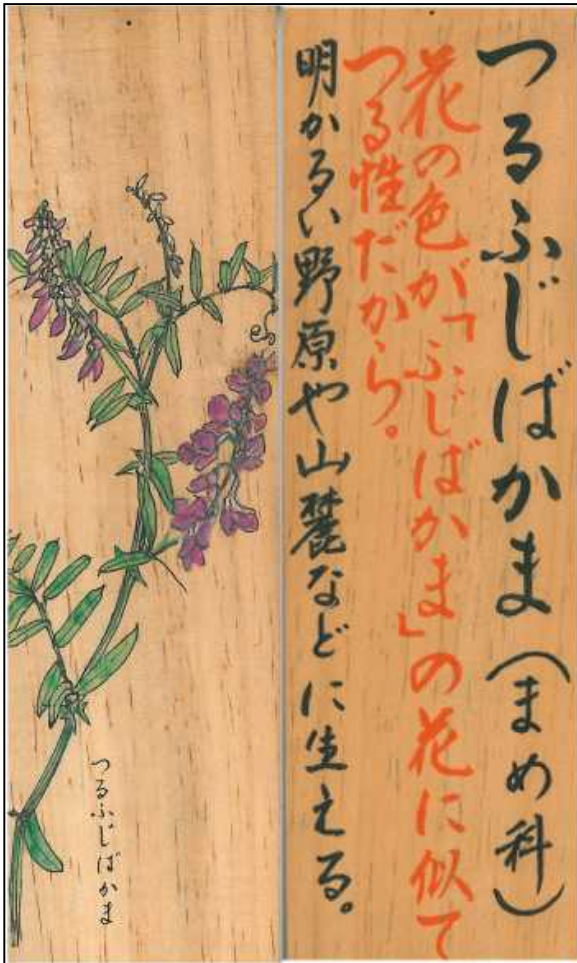 つるふじばかま（まめ科）
花の色が「ふじばかま」の花に似て
つる性だから。
明かるい野原や山麓などに生える。
つるふじばかま